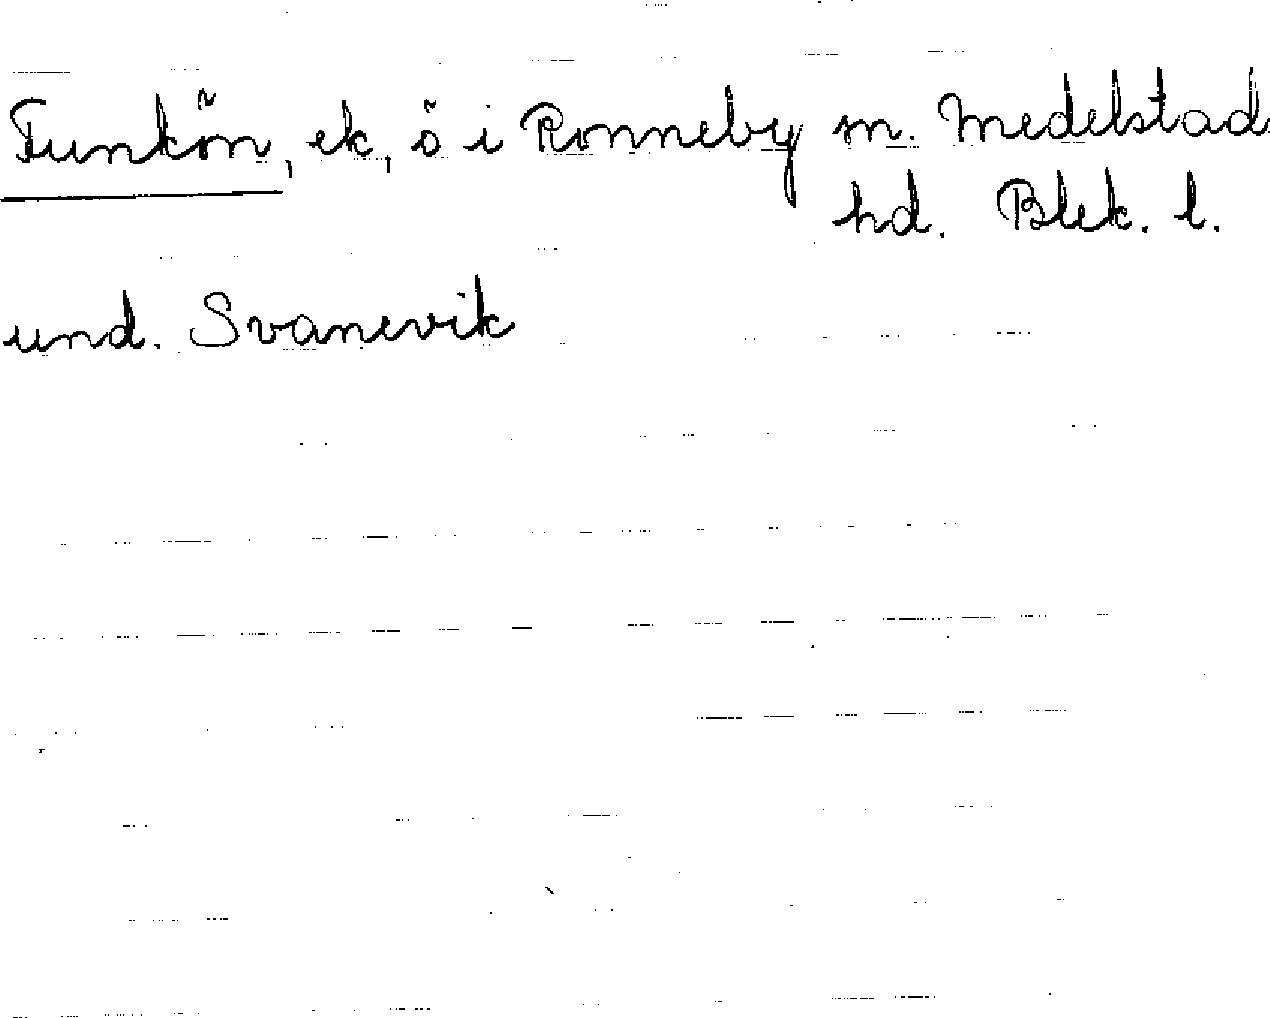 Funkön, ek, ö i Ronneby sn. Medelstad
hd. Blek. l.
und. Svanevik